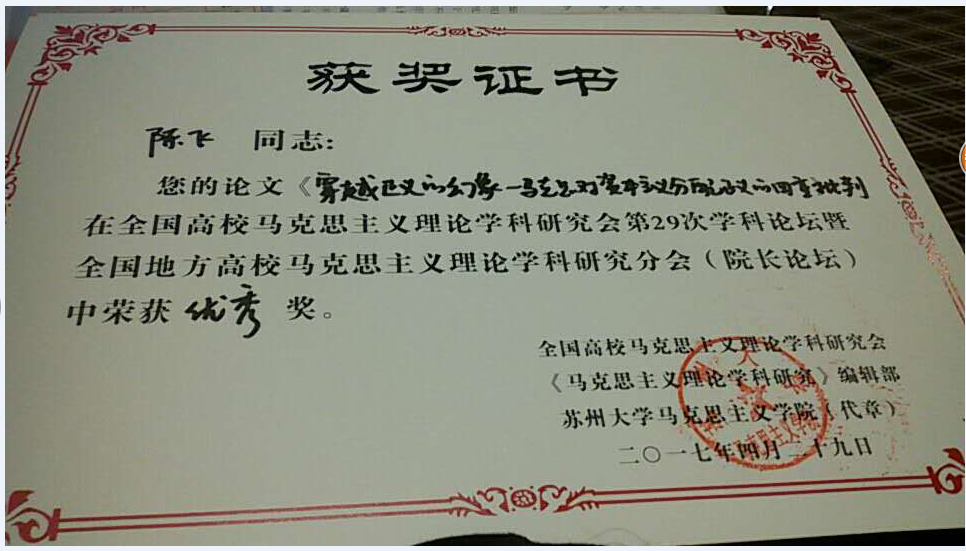 获奖证书
陈飞 同志:
您的论文《穿越正义的幻象—马克思对资本主义分配正义的四重批判
在全国高校马克思主义理论学科研究会第29次学科论坛暨
全国地方高校马克思主义理论学科研究分会（院长论坛）
中荣获 优秀 奖。
全国高校马克思主义理论学科研究会
《马克思主义理论学科研究》编辑部
苏州大学马克思主义学院（代章）
二〇一七年四月二十九日